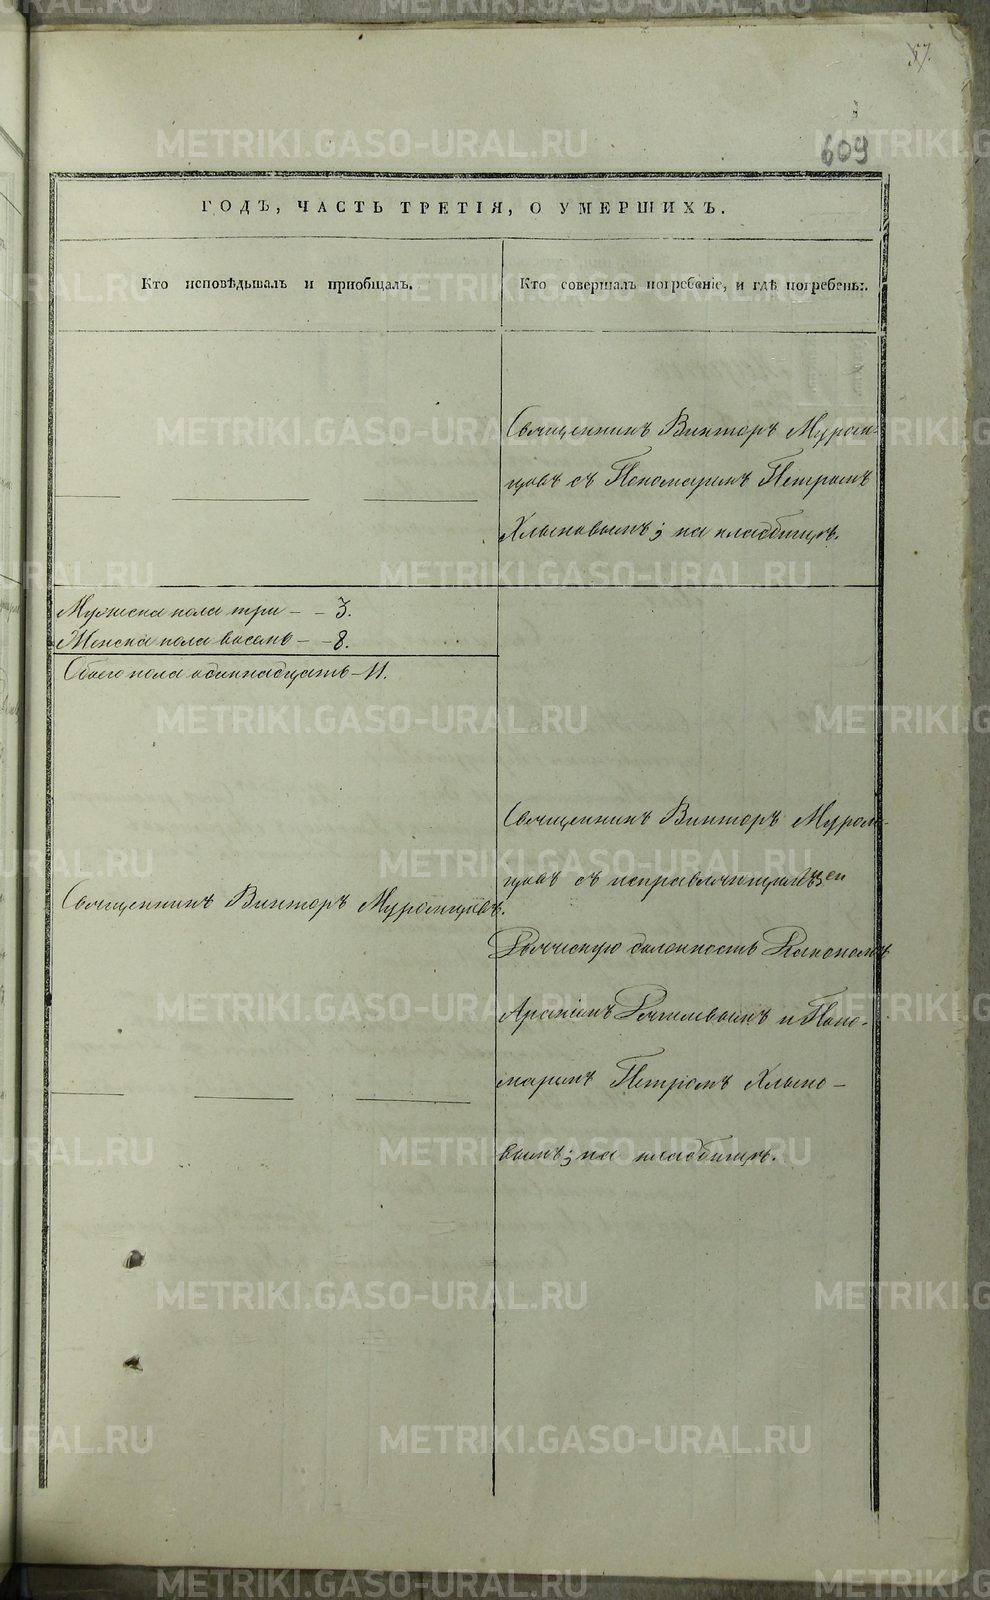 57.
609
ГОДЪ, ЧАСТЬ ТРЕТІЯ, О УМЕРШИХЪ.
Кто исповѣдывалъ и пріобщалъ.
Кто совершалъ погребеніе, и гдѣ погребены.
Священникъ Викторъ Муром-
цовъ съ Пономаремъ Петромъ
Хлыновымъ; на кладбищѣ.
Мужеска пола три – – 3.
Женска пола восемь – – 8.
Обоего пола одиннадцать – 11.
Священникъ Викторъ Муромцовъ.
Священникъ Викторъ Муром-
цовъ съ исправляющимъ
должность
и Поно-
маремъ Петромъ Хлыно-
вымъ; на кладбищѣ.
METRIKI.GASO-URAL.RU